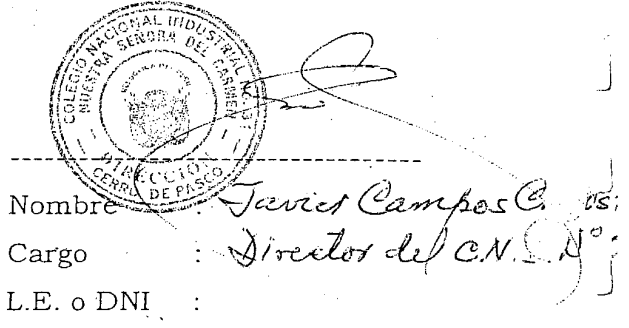 COLEGIO NACIONAL INDUSTRIAL
NUESTRA SEÑORA DEL CARMEN
DIRECCION
CERRO DE PASCO
Nombre : Javier Campos C.
Cargo : Director del C.N. N°
L.E. o DNI :